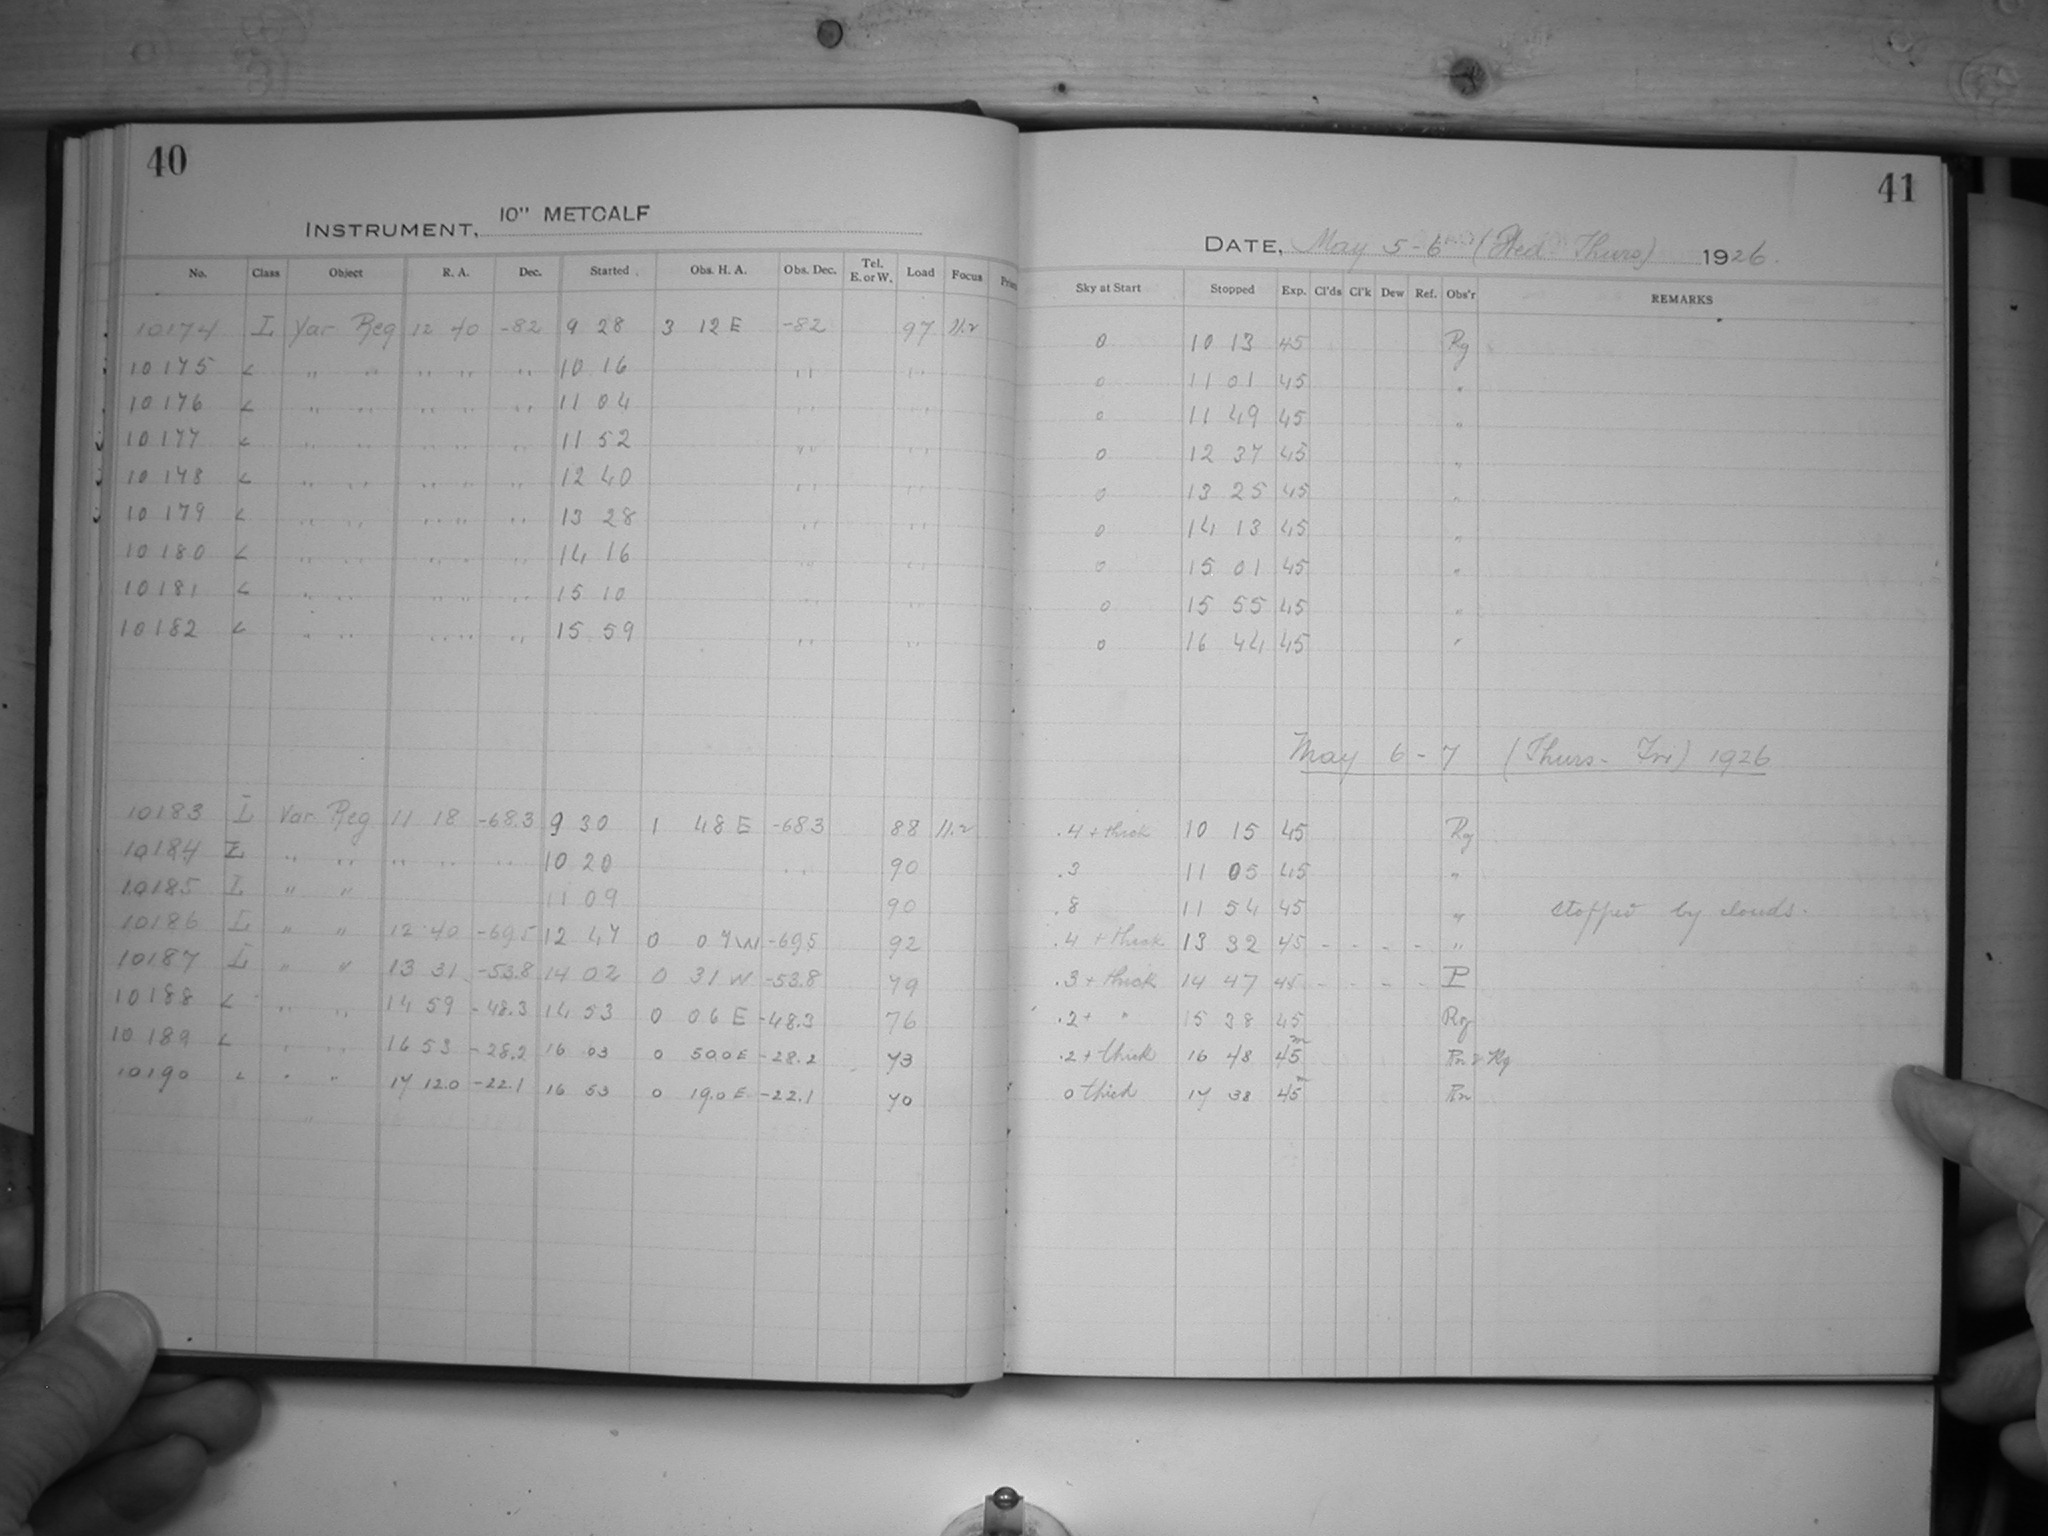 40
INSTRUMENT, 10" METCALF
No. Class Object R. A. Dec. Started Obs. H. A. Obs. Dec. Tel. E. or W. Load Focus
10174 L Var Reg 12 40 -82 9 28 3 12 E -82 97 11.2
10175 L " " " " " 10 16 " "
10176 L " " " " " 11 04 " "
10177 L " " " " " 11 52 " "
10178 L " " " " " 12 40 " "
10179 L " " " " " 13 28 " "
10180 L " " " " " 14 16 " "
10181 L " " " " " 15 10 " "
10182 L " " " " " 15 59 " "
10183 L Var Reg 11 18 -68.3 9 30 1 48 E -68.3 88 11.2
10184 L " " " " " 10 20 " 90
10185 L " " 11 09 90
10186 L " " 12 40 -69.5 12 47 0 07 W -69.5 92
10187 L " " 13 31 -53.8 14 02 0 31 W -53.8 79
10188 L " " 14 59 -48.3 14 53 0 06 E -48.3 76
10189 L " " 16 53 -28.2 16 03 0 50.0 E -28.2 73
10190 L " " 17 12.0 -22.1 16 53 0 19.0 E -22.1 70
41
DATE, May 5-6 (Wed-Thurs) 1926.
Sky at Start Stopped Exp. Cl'ds Cl'k Dew Ref. Obs'r REMARKS
0 10 13 45 Rg
0 11 01 45 "
0 11 49 45 "
0 12 37 45 "
0 13 25 45 "
0 14 13 45 "
0 15 01 45 "
0 15 55 45 "
0 16 44 45 "
May 6-7 (Thurs-Fri) 1926
.4 + thick 10 15 45 Rg
.3 11 05 45 "
.8 11 54 45 " stopped by clouds.
.4 + thick 13 32 45 - - - - "
.3 + thick 14 47 45 - - - - P
.2 + " 15 38 45 Rg
.2 + thick 16 48 45m Rn & Rg
0 thick 17 38 45m Rn